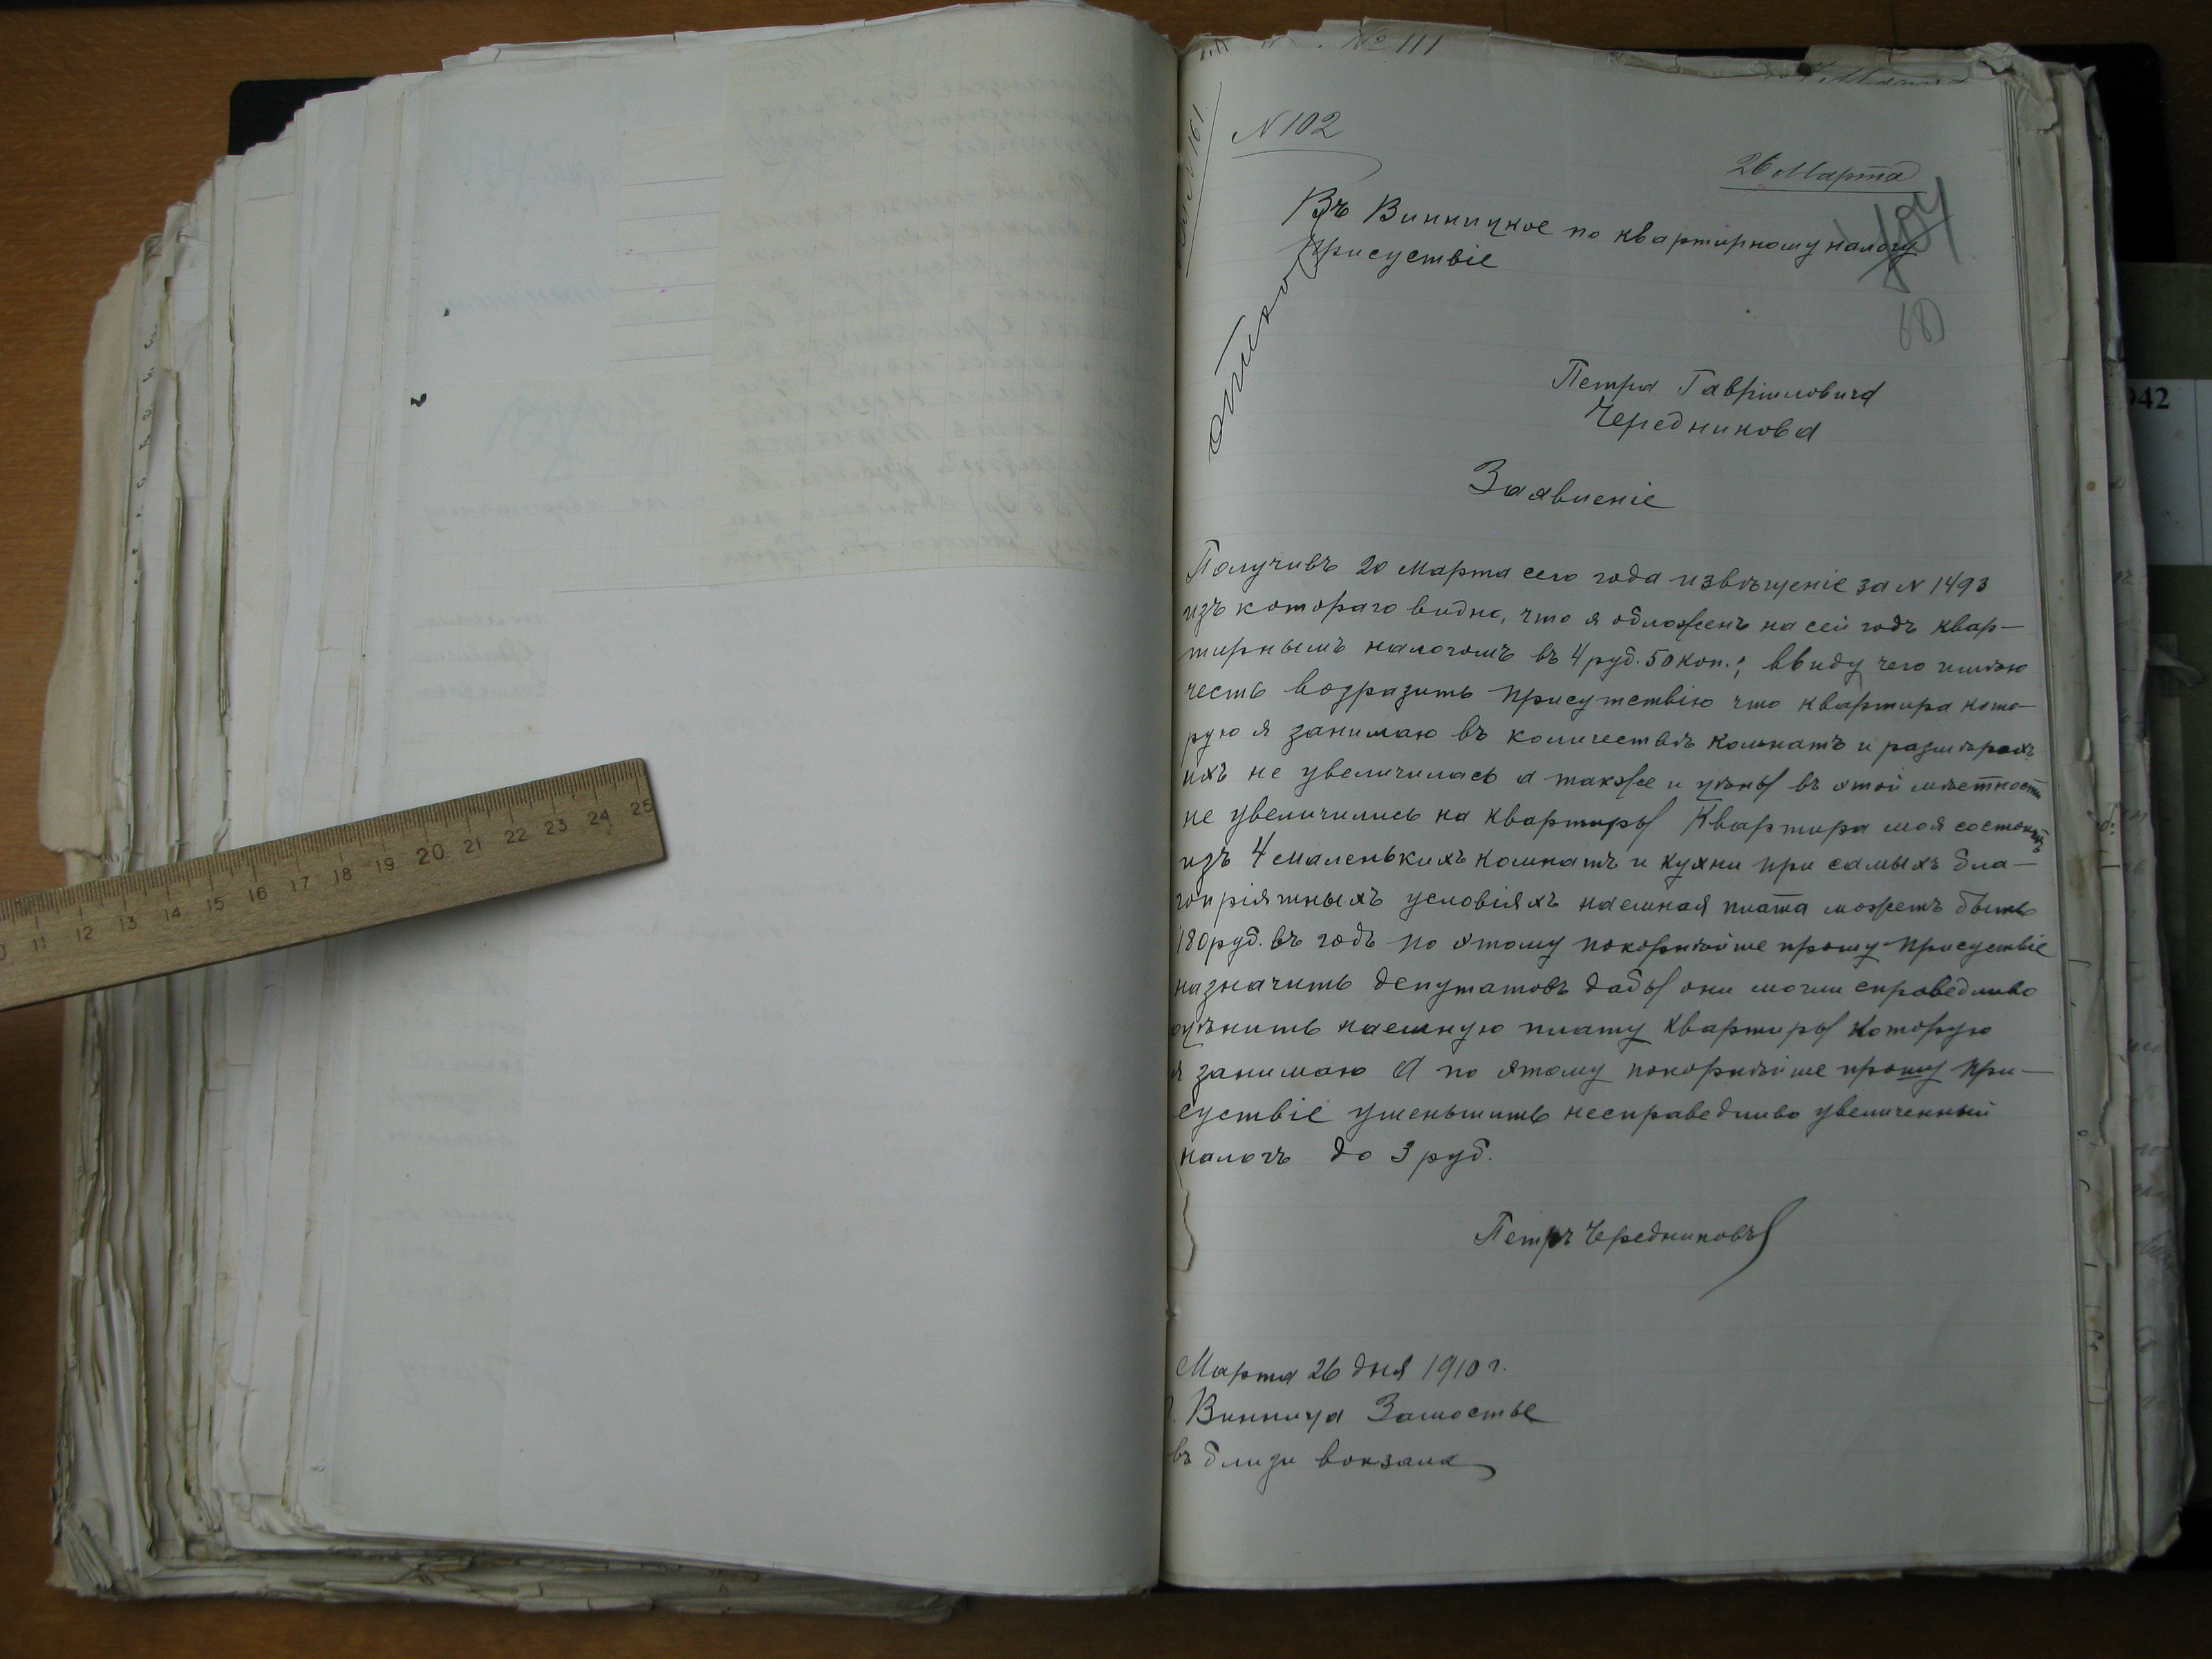 № 111
N 102
26 Марта
Въ Винницкое по квартирному налогу
Присуствіе
Петра Гавріиловича
Чередникова
Заявленіе
Получивъ 20 Марта сего года извѣщеніе за N 1493
изъ котораго видно, что я обложенъ на сей годъ квар-
тирнымъ налогомъ въ 4 руб. 50 коп.; ввиду чего имѣю
честь возразить Присутствію что квартира кото-
рую я занимаю въ количествѣ комнатъ и размѣрахъ
ихъ не увеличилась а также и цѣны въ этой мѣстности
не увеличились на квартиры Квартира моя состоитъ
изъ 4 маленькихъ комнатъ и кухни при самыхъ бла-
гопріятныхъ условіяхъ наемная плата можетъ быть
180 руб. въ годъ по этому покорнѣйше прошу Присуствіе
назначить депутатовъ дабы они могли справедливо
оцѣнить наемную плату квартиры которую
я занимаю А по этому покорнѣйше прошу При-
суствіе уменьшить несправедливо увеличенный
налогъ до 3 руб.
Петръ Чередниковъ
Марта 26 дня 1910 г.
г. Винница Замостье
въ близи вокзала
942
11 12 13 14 15 16 17 18 19 20 21 22 23 24 25